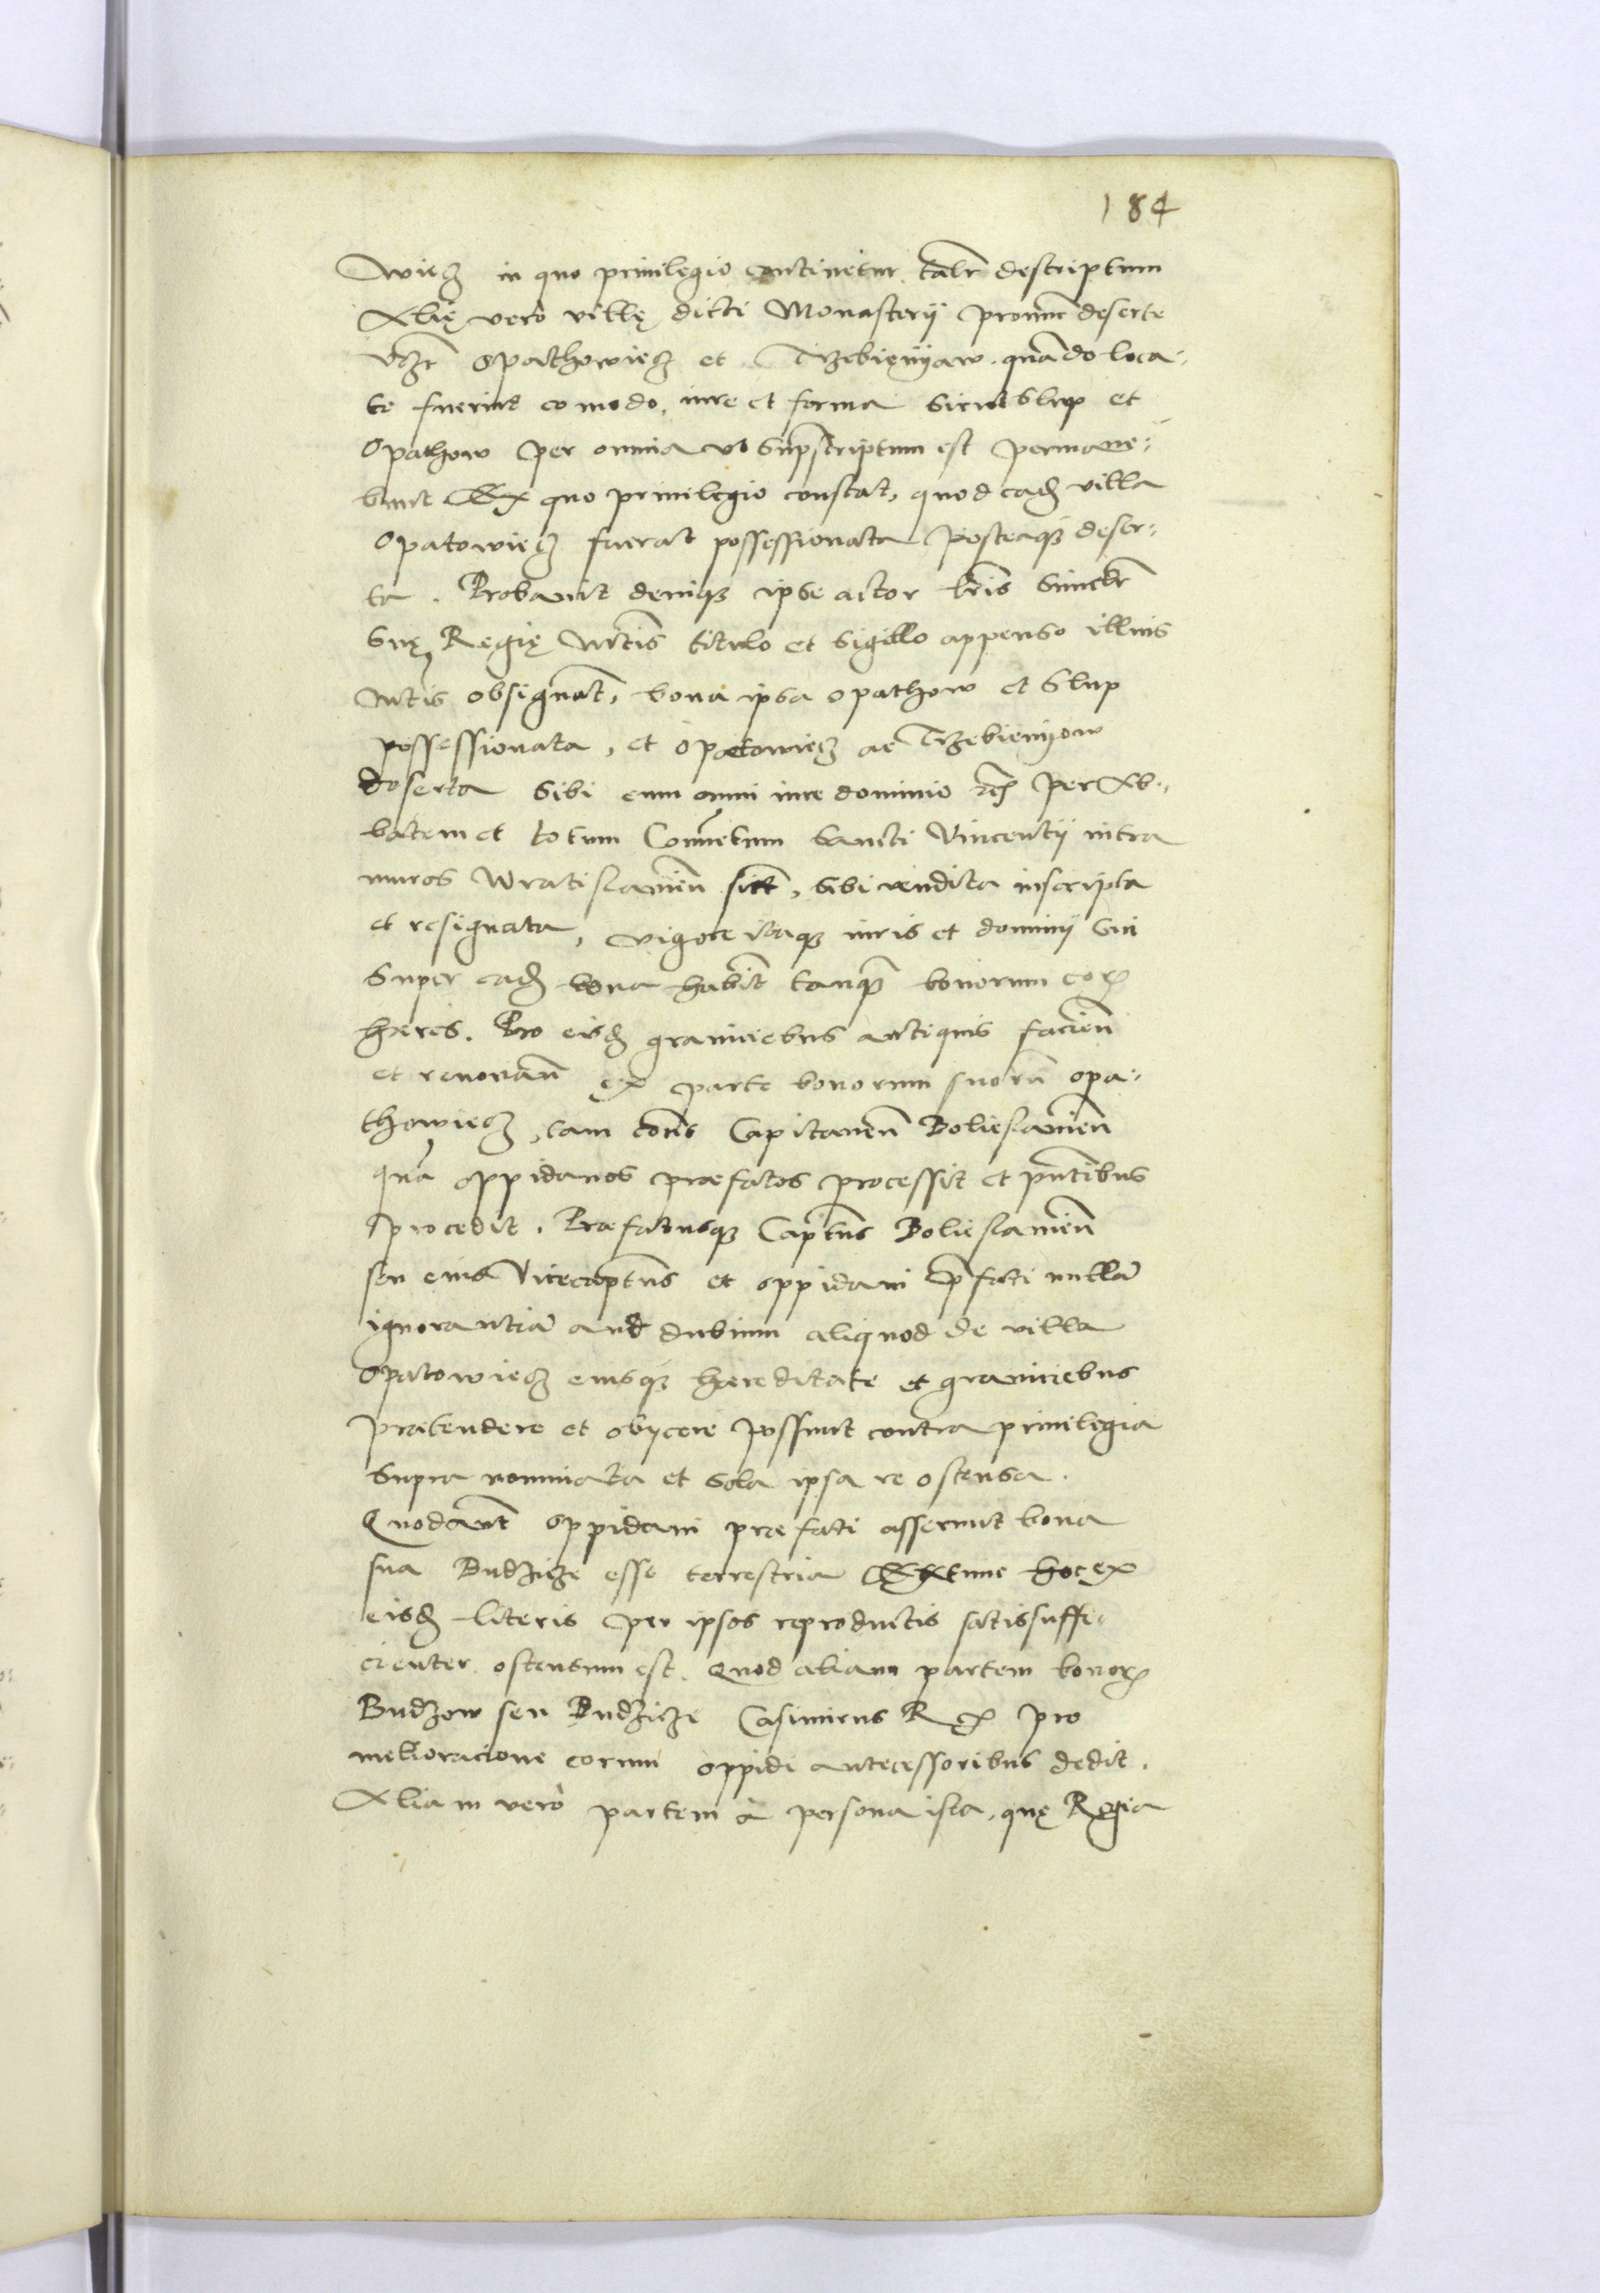 184
wiecz in quo privilegio continetur talr descriptum
Alię vero villę dicti Monasterij pronunc deserte
vzt Opathowiecz et Trzebięnijaw quãdo loca-
te fuerint eo modo, iure et forma sicut Slup et
Opathow per omnia vt supscriptum est permane-
bunt Ex quo privilegio constat, quod eadẽ villa
Opatowiecz fuerat possessionata posteaq̃ deser-
ta. Probavit deniq̃ ipse actor lr̃is similr̃
suę Regię Mt̃is titulo et sigillo appenso illius
Mt̃is obsignat̃, bona ipsa Opathow et Slup
possessionata, et Opatowiecz ac Trzebienijow
deserta sibi cum omni iure dominio etc̃ per Ab-
batem et totum Conventum sancti Vincentij intra
muros Wratislavieñ sit̃, sibi vendita inscripta
et resignata, vigore itaq̃ iuris et dominij sui
super eadẽ bona habit̃ tanq̃ bonorum eoꝝ
hæres. Pro eisdẽ graniciebus antiquis facieñ
et renovañ ex parte bonorum suorũ Opa-
thowiecz, tam coñs Capitaneũ Bolieslavieñ
quã oppidanos præfatos processit et pñtibus
procedit. Præfatusq̃ Captñs Bolieslavieñ
seu eius vicecaptñs et oppidani p̃fati nullã
ignorantiã aut dubium aliquod de villa
Opatowiecz eiusq̃ hæreditate et graniciebus
prætendere et obijcere possunt contra privilegia
supra nominata et sola ipsa re ostensa.
Quod aũt oppidani præfati asserunt bona
sua Budzicze esse terrestria Extunc hoc ex
eisdẽ literis per ipsos reproductis satis suffi-
cienter ostensum est. Quod aliam partem bonoꝝ
Budzow seu Budzicze Casimirus Rex pro
melioracione eorum oppidi antecessoribus dedit.
Aliam verò partem à persona ista, quę Regia